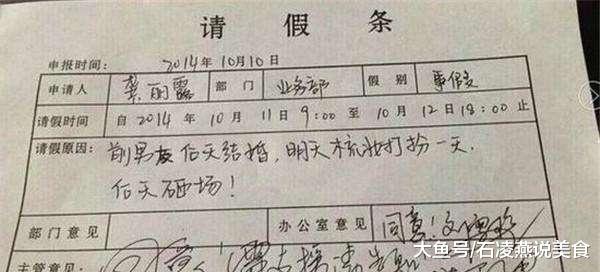 请假条
申报时间： 2014年10月10日
申请人 龚丽露 部门 业务部 假别 事假
请假时间 自2014年10月11日9:00至10月12日18:00止
请假原因： 前男友后天结婚，明天梳妆打扮一天.
后天砸场！
部门意见 办公室意见 同意！
主管意见
大鱼号/石凌燕说美食